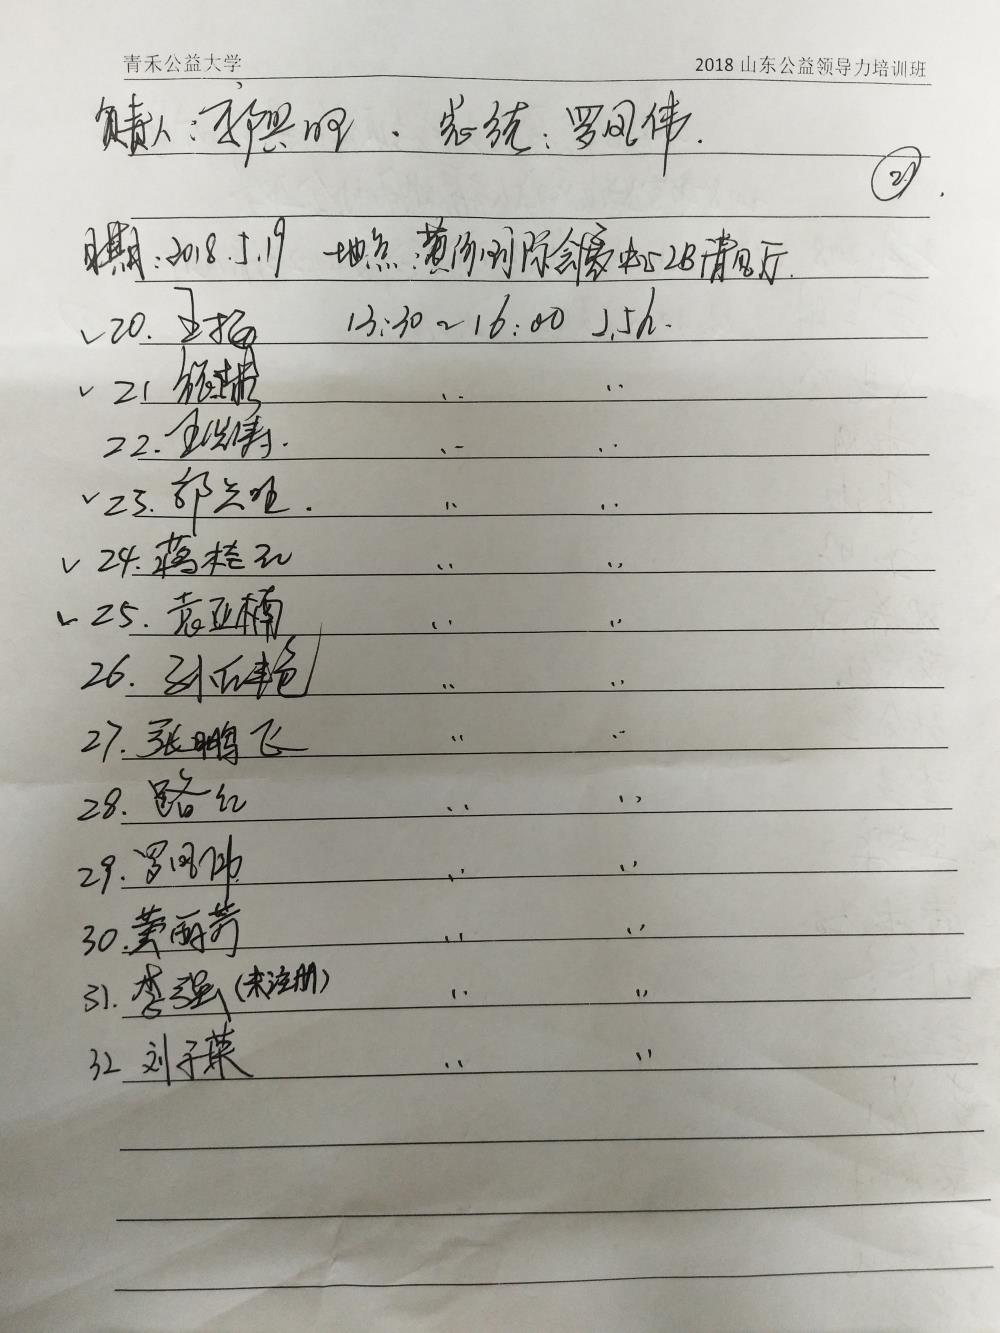 青禾公益大学 2018 山东公益领导力培训班
负责人: . 总统: 罗凤伟.
2
日期: 2018.5.19 地点: 黄河国际会展中心2B清风厅.
✓20. 王振 13:30~16:00 5.5h.
✓ 21 〃 〃
22. 王 〃 〃
✓ 23. 郭兴旺. 〃 〃
✓ 24. 蒋桂红 〃 〃
✓ 25. 袁亚楠 〃 〃
26. 艳 〃 〃
27. 张鹏飞 〃 〃
28. 路红 〃 〃
29. 罗凤伟 〃 〃
30. 黄丽芳 〃 〃
31. 李强(未注册) 〃 〃
32 刘子英 〃 〃